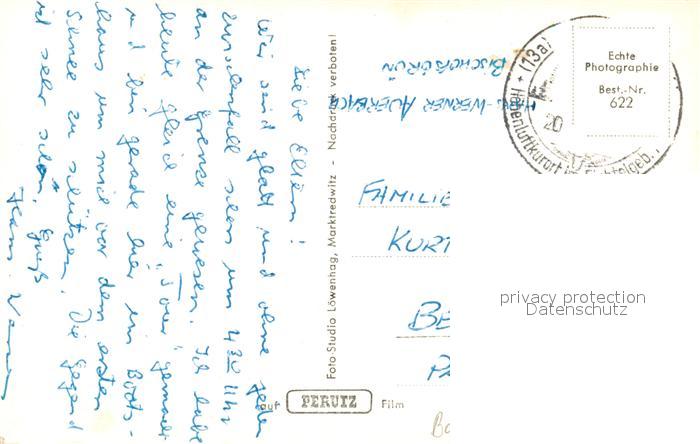 Liebe Eltern!
Wir sind glatt und ohne jeden
Zwischenfall schon um 4 30 Uhr
an der Grenze gewesen. Ich habe
heute gleich eine "Tour" gemacht
und bin gerade hier im
haus um mich vor dem ersten
Schnee zu schützen. Die Gegend
ist sehr schön. Gruß
Hans-
Foto-Studio Löwenhag, Marktredwitz - Nachdruck verboten!
auf PERUTZ Film
-WERNER AUERBACH
BISCHOFSGRÜN
(13a)
Höhenluftkurort
20
Echte
Photographie
Best.-Nr.
622
FAMILIE
KURT
BE
PA
privacy protection
Datenschutz